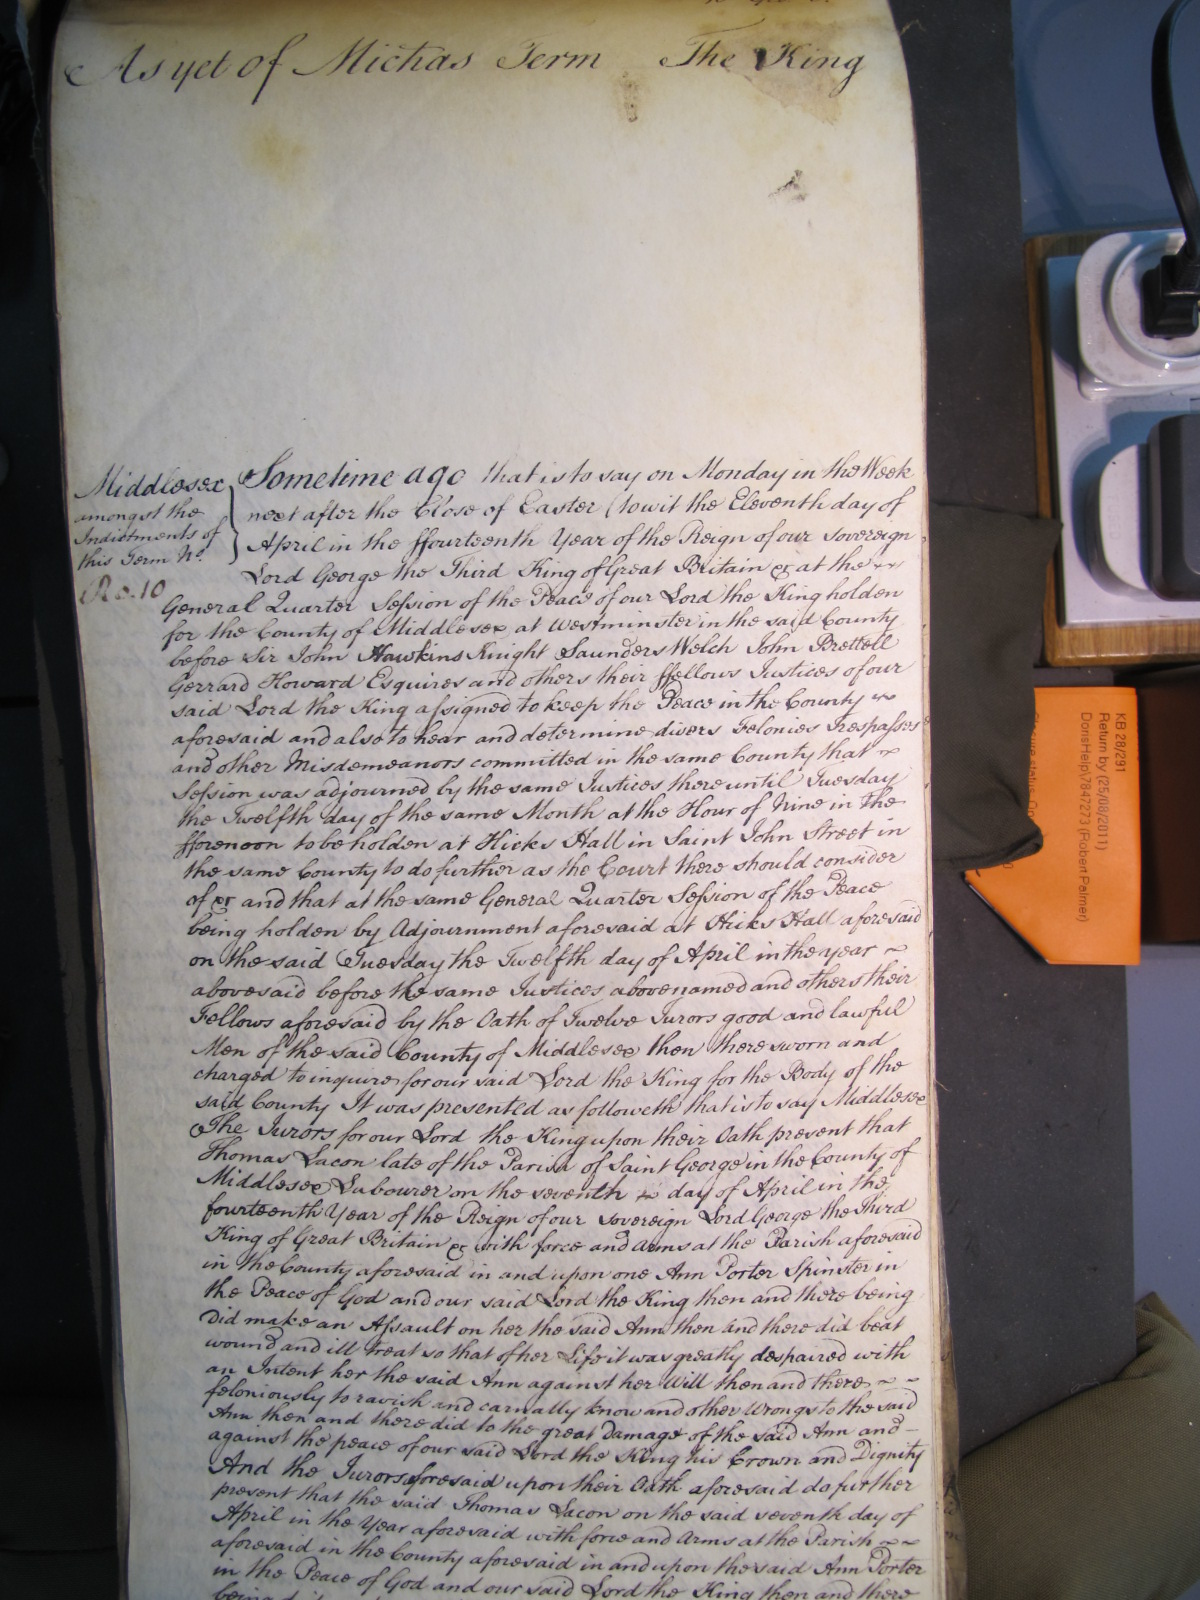 As yet of Michas Term The King
Middlesex
amongst the
Indictments of
this Term No.
Ro. 10
Sometime ago that is to say on Monday in the Week
next after the Close of Easter (towit the Eleventh day of
April in the ffourteenth Year of the Reign of our sovereign
Lord George the Third King of Great Britain &c at the
General Quarter Session of the Peace of our Lord the King holden
for the County of Middlesex at Westminster in the said County
before Sir John Hawkins Knight Saunders Welch John Brettell
Gerrard Howard Esquires and others their ffellows Justices of our
said Lord the King assigned to keep the Peace in the County
aforesaid and also to hear and determine divers Felonies Trespasses
and other Misdemeanors committed in the same County that
Session was adjourned by the same Justices there until Tuesday
the Twelfth day of the same Month at the Hour of Nine in the
fforenoon to be holden at Hicks Hall in Saint John Street in
the same County to do further as the Court there should consider
of &c and that at the same General Quarter Session of the Peace
being holden by Adjournment aforesaid at Hicks Hall aforesaid
on the said Tuesday the Twelfth day of April in the year
abovesaid before the same Justices abovenamed and others their
Fellows aforesaid by the Oath of Twelve Jurors good and lawful
Men of the said County of Middlesex then there sworn and
charged to inquire for our said Lord the King for the Body of the
said County It was presented as followeth that is to say Middlesex
The Jurors for our Lord the King upon their Oath present that
Thomas Lacon late of the Parish of Saint George in the County of
Middlesex Labourer on the seventh day of April in the
fourteenth Year of the Reign of our sovereign Lord George the Third
King of Great Britain &c with force and arms at the Parish aforesaid
in the County aforesaid in and upon one Ann Porter Spinster in
the Peace of God and our said Lord the King then and there being
did make an Assault on her the said Ann then and there did beat
wound and ill treat so that of her Life it was greatly despaired with
an Intent her the said Ann against her Will then and there
feloniously to ravish and carnally know and other Wrongs to the said
Ann then and there did to the great Damage of the said Ann and
against the peace of our said Lord the King his Crown and Dignity
And the Jurors aforesaid upon their Oath aforesaid do further
present that the said Thomas Lacon on the said seventh day of
April in the Year aforesaid with force and Arms at the Parish
aforesaid in the County aforesaid in and upon the said Ann Porter
in the Peace of God and our said Lord the King then and there
KB 28/291
Return by (25/08/2011)
DorisHelp\7847273 (Robert Palmer)